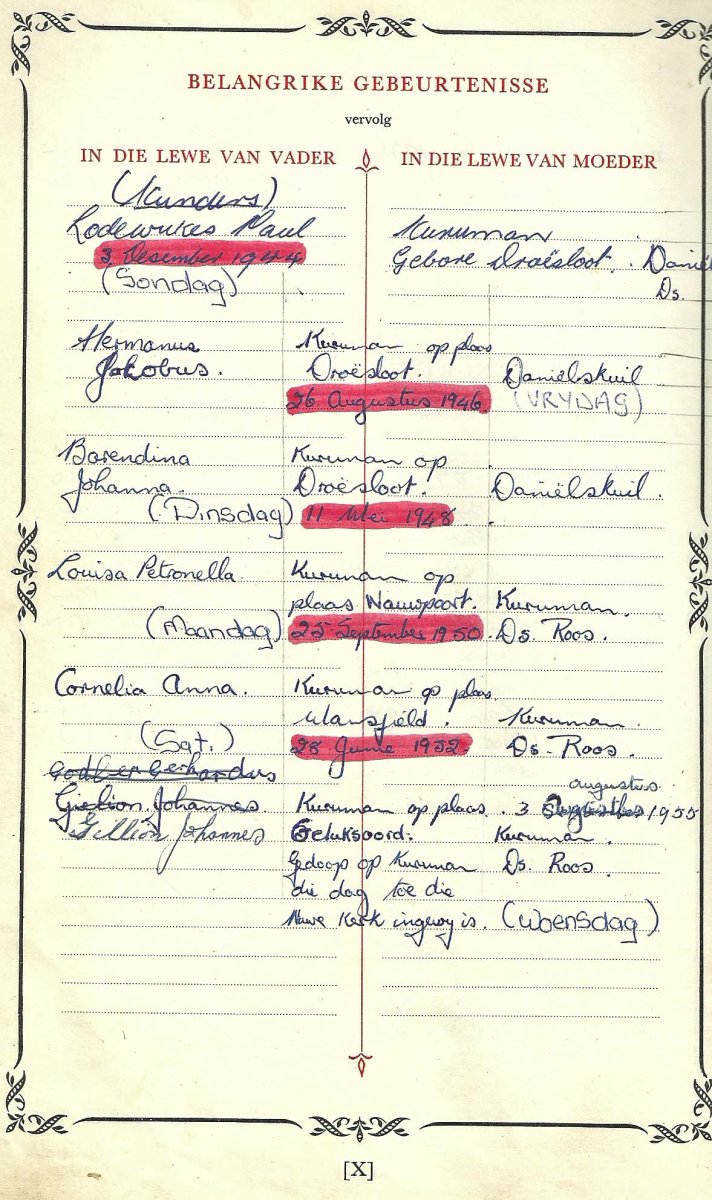 BELANGRIKE GEBEURTENISSE
vervolg
IN DIE LEWE VAN VADER IN DIE LEWE VAN MOEDER
(Kinders)
Lodewukes Paul Kuruman
3 Desember 1944 Gebore Droësloot. Daniël
(Sondag) Ds.
Hermanus Kuruman op plaas
Jakobus. Droësloot. Daniëlskuil
26 Augustus 1946 (VRYDAG)
Barendina Kuruman op
Johanna. Droësloot. Daniëlskuil.
(Dinsdag) 11 Mei 1948
Louisa Petronella. Kuruman op
plaas Nauwpoort. Kuruman.
(Maandag) 25 September 1950 Ds. Roos.
Cornelia Anna. Kuruman op plaas
Mansfield. Kuruman.
(Sat.) 28 Junie 1952. Ds. Roos.
Gerhardus augustus
Gielion Johannes Kuruman op plaas. 3 Augustus 1955
Gillion Johannes Geluksoord: Kuruman.
Gedoop op Kuruman Ds. Roos.
die dag toe die
Nuwe Kerk ingewy is. (Woensdag)
[X]